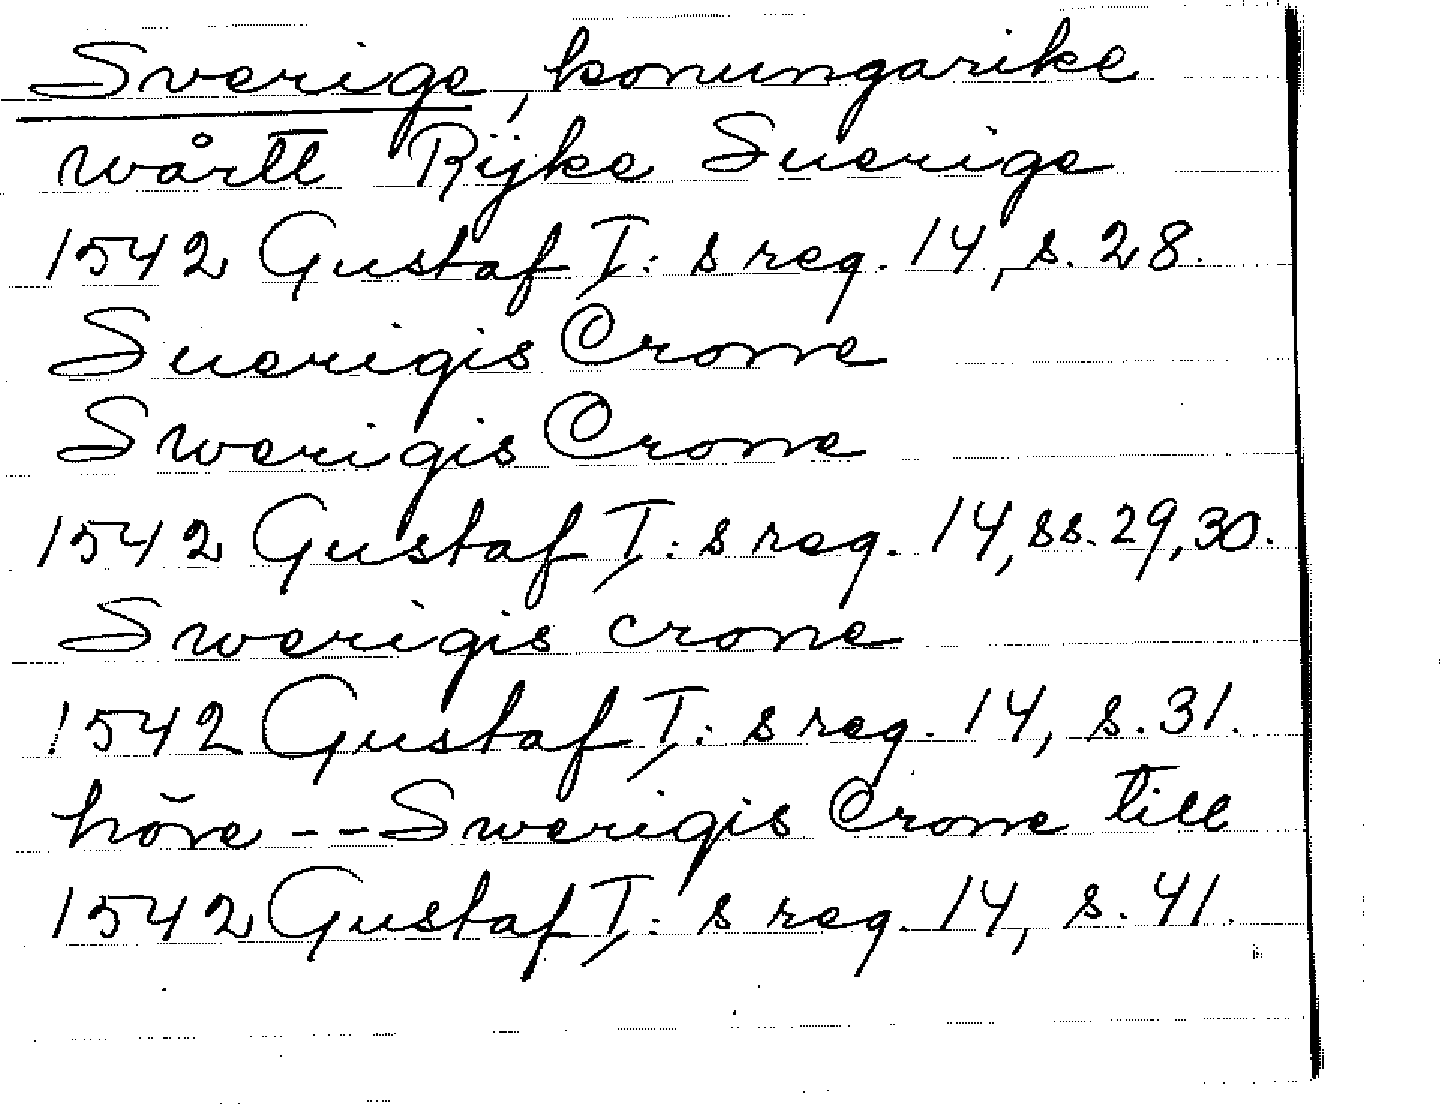 Sverige, konungarike
wårtt Rÿke Suerige
1542 Gustaf I:s reg. 14, s. 28.
Suerigis Crone
Swerigis Crone
1542 Gustaf I:s reg. 14, ss. 29, 30.
Swerigis crone
1542 Gustaf I:s reg. 14, s. 31.
höre -- Swerigis Crone till
1542 Gustaf I:s reg. 14, s. 41.